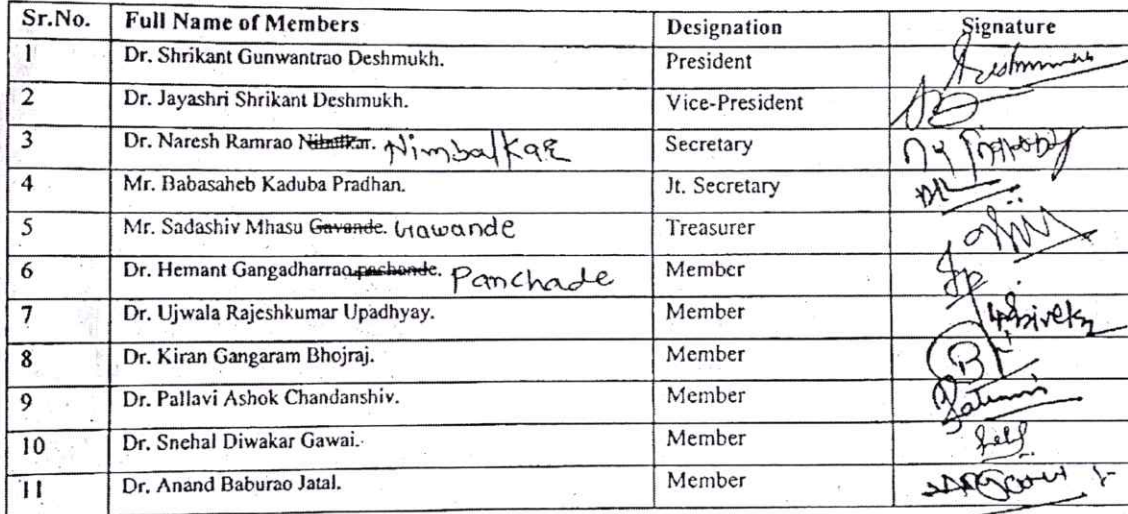 Sr.No. Full Name of Members Designation Signature
1 Dr. Shrikant Gunwantrao Deshmukh. President
2 Dr. Jayashri Shrikant Deshmukh. Vice-President
3 Dr. Naresh Ramrao Nimbalkar Secretary
4 Mr. Babasaheb Kaduba Pradhan. Jt. Secretary
5 Mr. Sadashiv Mhasu Gavande. Gawande Treasurer
6 Dr. Hemant Gangadharrao pachonde. Panchade Member
7 Dr. Ujwala Rajeshkumar Upadhyay. Member
8 Dr. Kiran Gangaram Bhojraj. Member
9 Dr. Pallavi Ashok Chandanshiv. Member
10 Dr. Snehal Diwakar Gawai. Member
11 Dr. Anand Baburao Jatal. Member